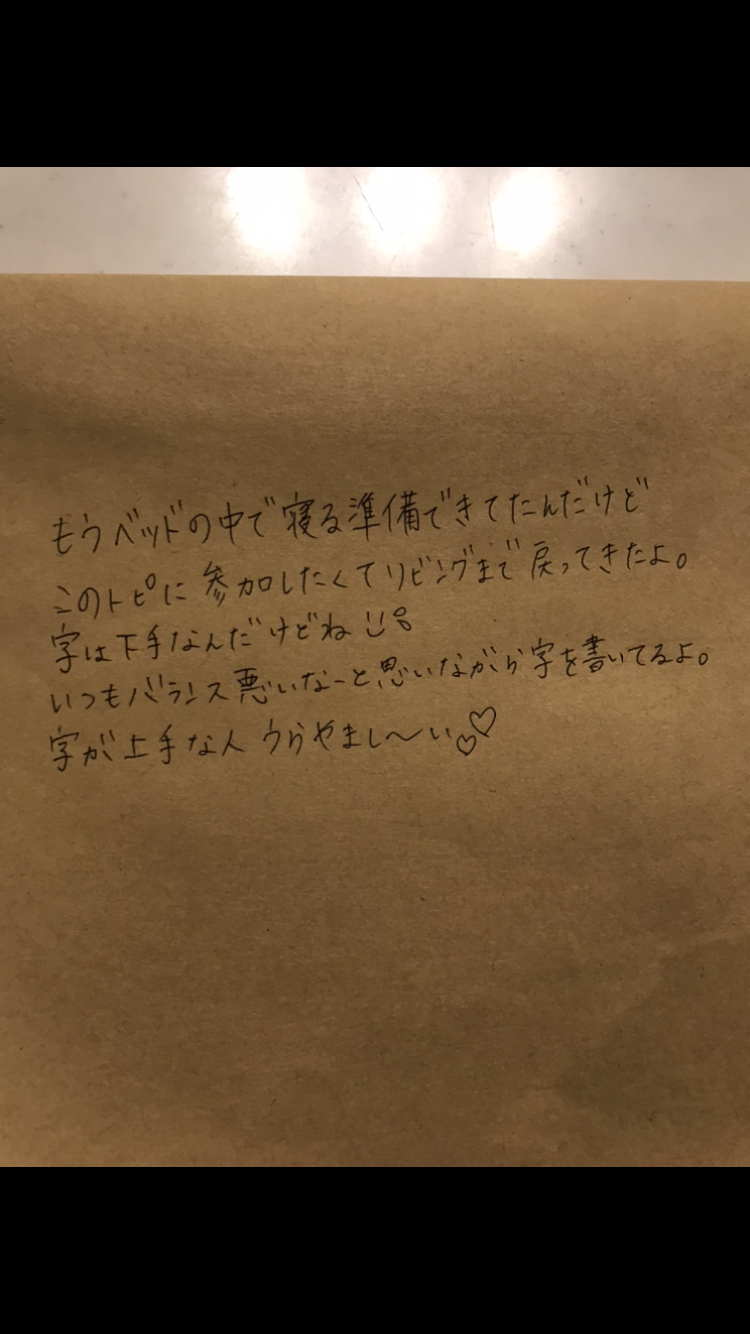 もうベッドの中で寝る準備できてたんだけど
このトピに参加したくてリビングまで戻ってきたよ。
字は下手なんだけどね
いつもバランス悪いなーと思いながら字を書いてるよ。
字が上手な人うらやまし〜い♡♡